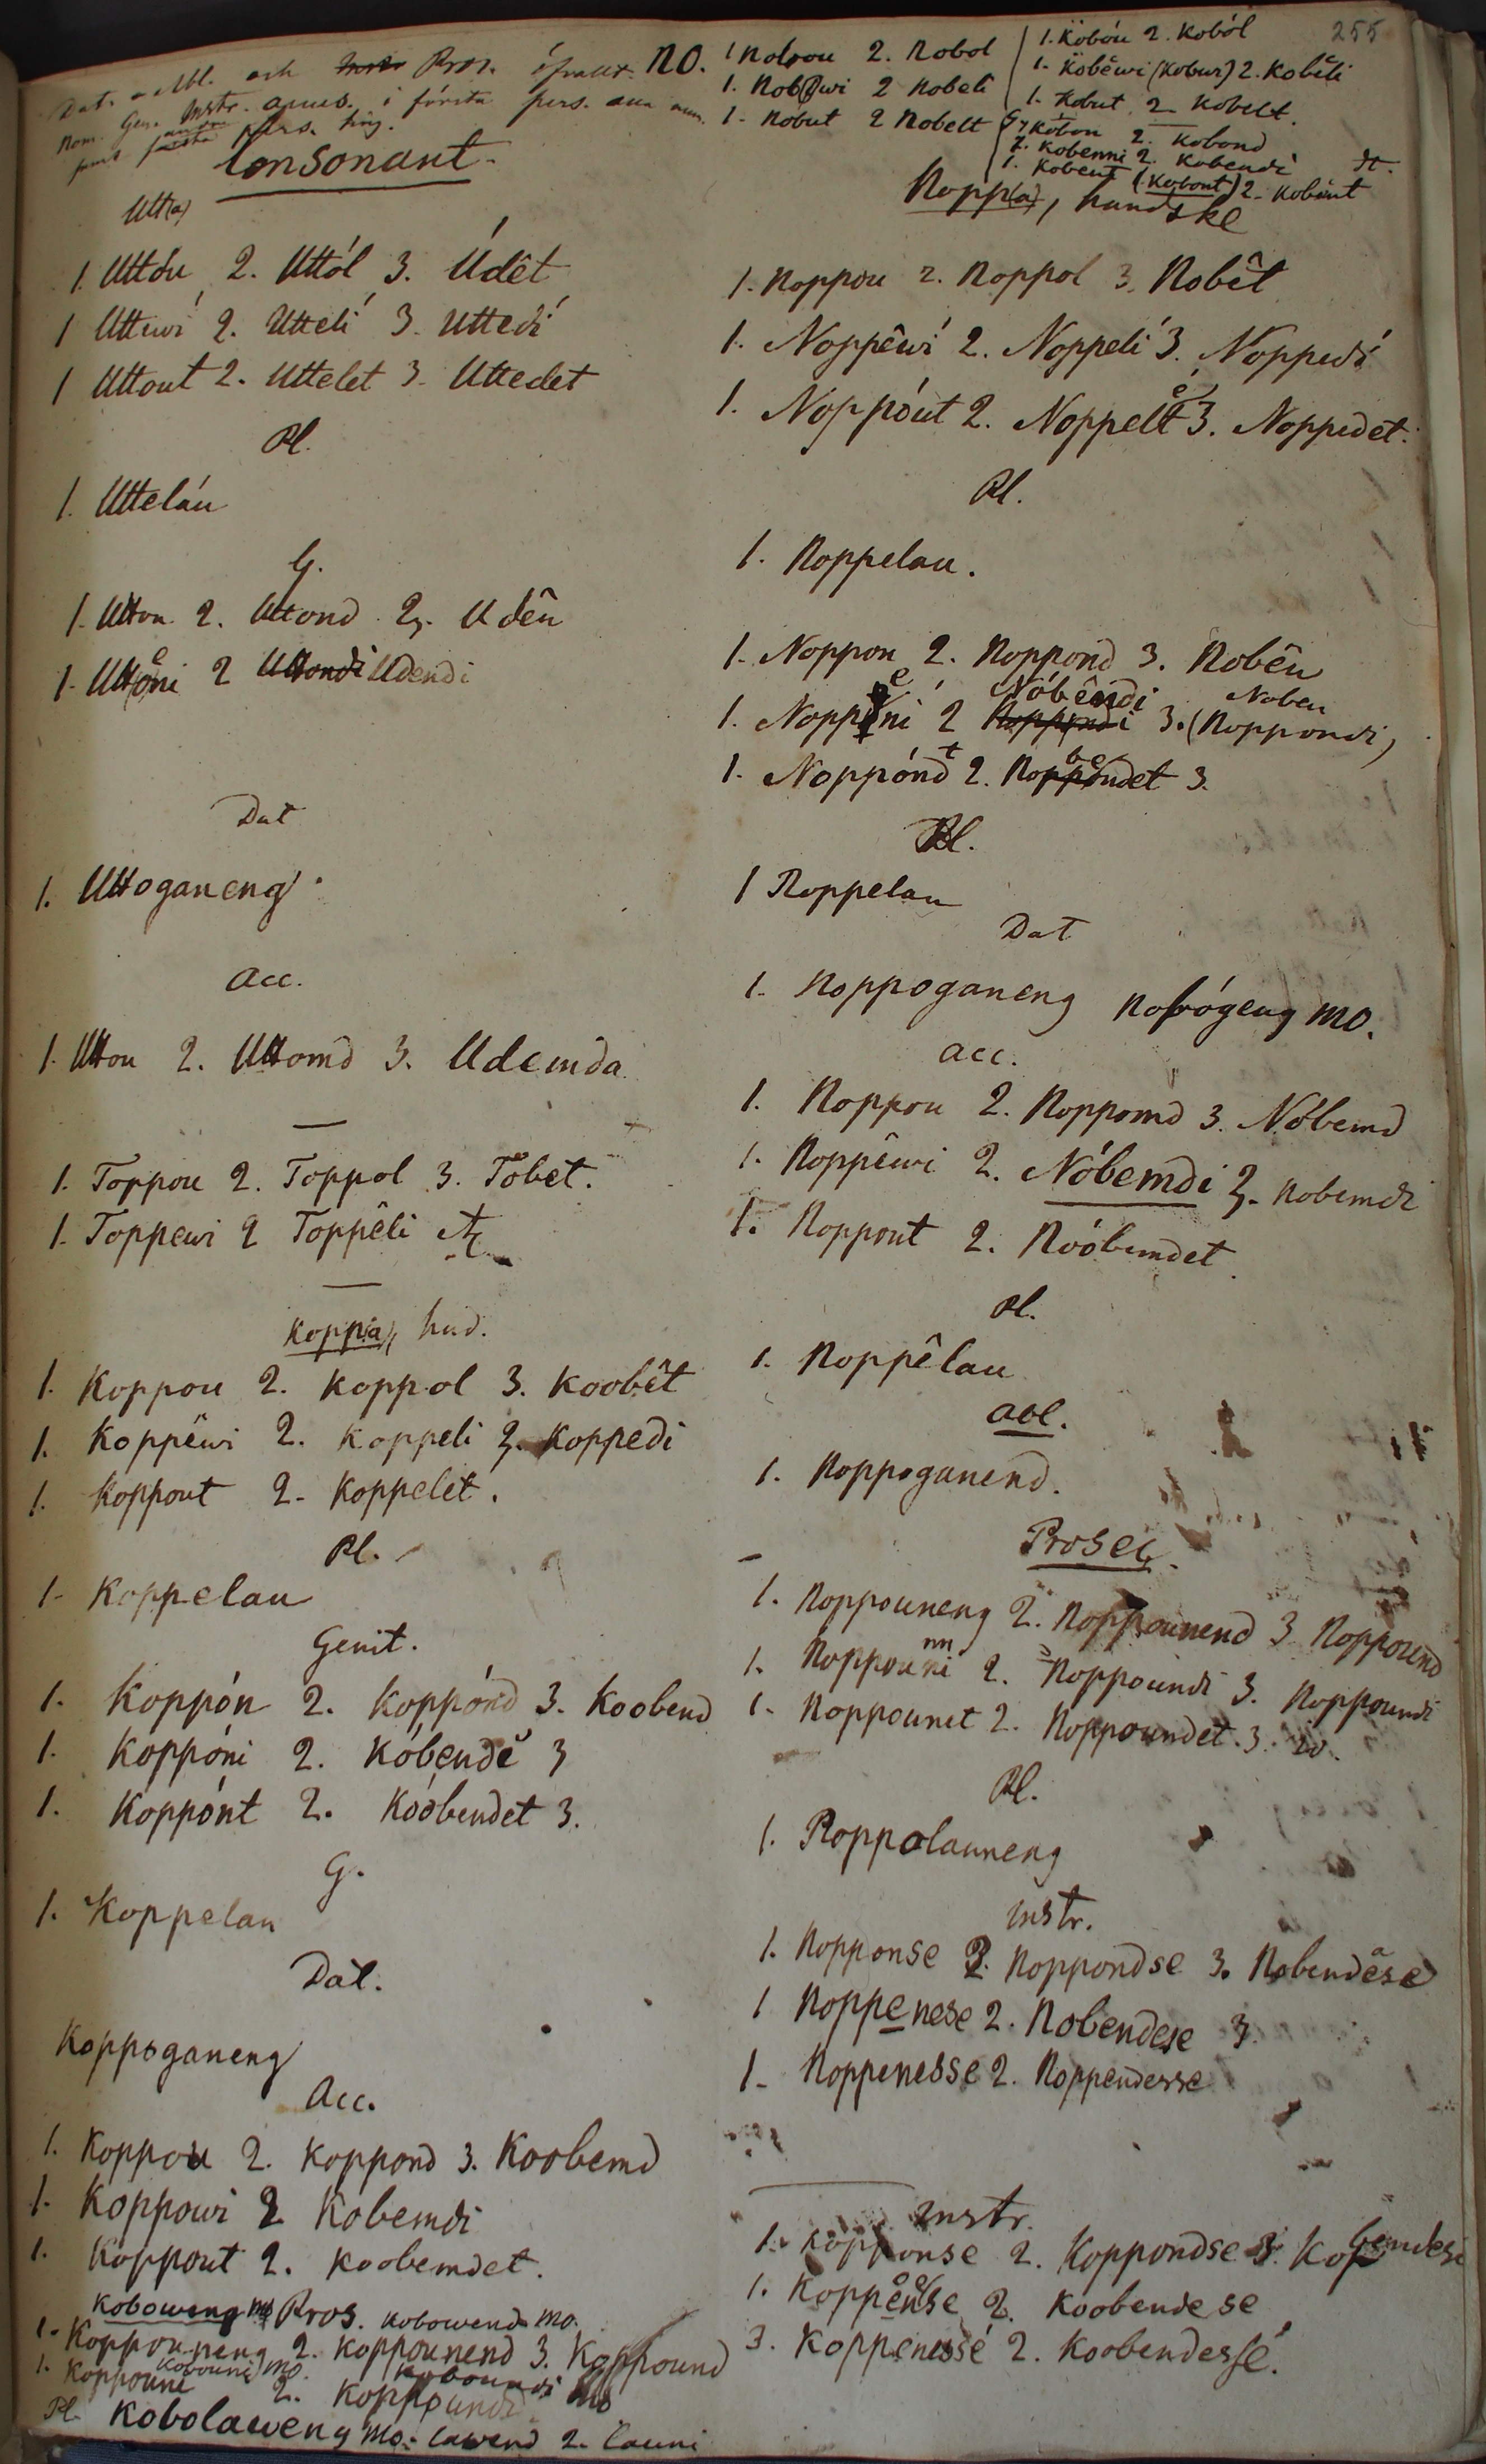 255
Dat. Abl. och Pros.
NO. 1 Nobou 2. Nobol
1. Nobewi 2 Nobeli
1- Nobut 2 Nobelt
1. Kobou 2. Koból
1- Kobëwi (Kobui) 2. Kobëli
1- Kobut 2- Kobelt.
Kobon 2. Kobond
Kobenni 2. Kobendi
1. Kobent (Kobont) 2- Kobent
Consonant.
Utt(a)
1. Uttóu 2. Uttól 3. Údêt
1 Uttewi 2. Utteli 3. Uttedi
1 Uttout 2. Uttelet 3. Uttedet
Pl.
1. Utteláu
G.
1. Utton 2. Uttond 3. Udên
1. Uttoni 2 Uttondi Udendi
Dat
1. Uttoganeng
Acc.
1. Uttou 2. Uttomd 3. Udemda
1. Toppou 2. Toppol 3. Tobet.
1. Toppewi 2 Toppêli
Kopp(a), hud.
1. Koppou 2. Koppol 3. Koobêt
1. Koppëwi 2. Koppeli 3. Koppedi
1. Koppout 2- Koppelet.
Pl.
1- Koppelau
Genit.
1. Koppón 2. Koppónd 3. Koobend
1. Koppóni 2. Kóbende 3
1. Koppónt 2. Koóbendet 3.
G.
1. Koppelan
Dat.
Koppoganeng
Acc.
1. Koppou 2. Koppond 3. Koobemd
1. Koppowi 2 Kobemdi
1. Koppout 2. Koobemdet.
Koboweng mo Pros. Kobowend mo.
1. Koppouneng 2. Koppounend 3. Koppound
Kobouni mo. Koboundi mo
1. Koppouni 2. Koppoundi
Pl. Kobolaweng mo. lawend 2. launi
Nopp(a), handske
1. Noppou 2. Noppol 3. Nobêt
1. Noppêwi 2. Noppeli 3. Noppedi
1. Noppóut 2. Noppelt 3. Noppedet.
Pl.
1. Noppelau.
1. Noppon 2. Noppond 3. Nobên
Nóbêndi Noben
1. Noppeni 2 Noppondi 3. (Noppondi)
1. Noppónt 2. Nobendet 3.
Pl.
1 Noppelau
Dat
1. Noppoganeng Nobógeng mo.
Acc.
1. Noppou 2. Noppomd 3. Nóbemd
1. Noppêwi 2. Nóbemdi 3. Nobemdi
1. Noppout 2. Noóbemdet
Pl.
1. Noppêlau
Abl.
1. Noppoganend.
Prosec.
1. Noppouneng 2. Noppounend 3 Noppound
1. Noppouni 2. Noppoundi 3. Noppoundi
1. Noppounet 2. Noppoundet. 3. id.
Pl.
1. Noppolauneng
Instr.
1. Nopponse 2. Noppondse 3. Nobendese
1 Noppenese 2. Nobendese 3
1- Noppenesse 2. Noppendesse
Instr.
1. Kopponse 2. Koppondse 3. Kobendese
1. Koppense 2. Koobendese
3. Koppenessé 2. Koobendessé.